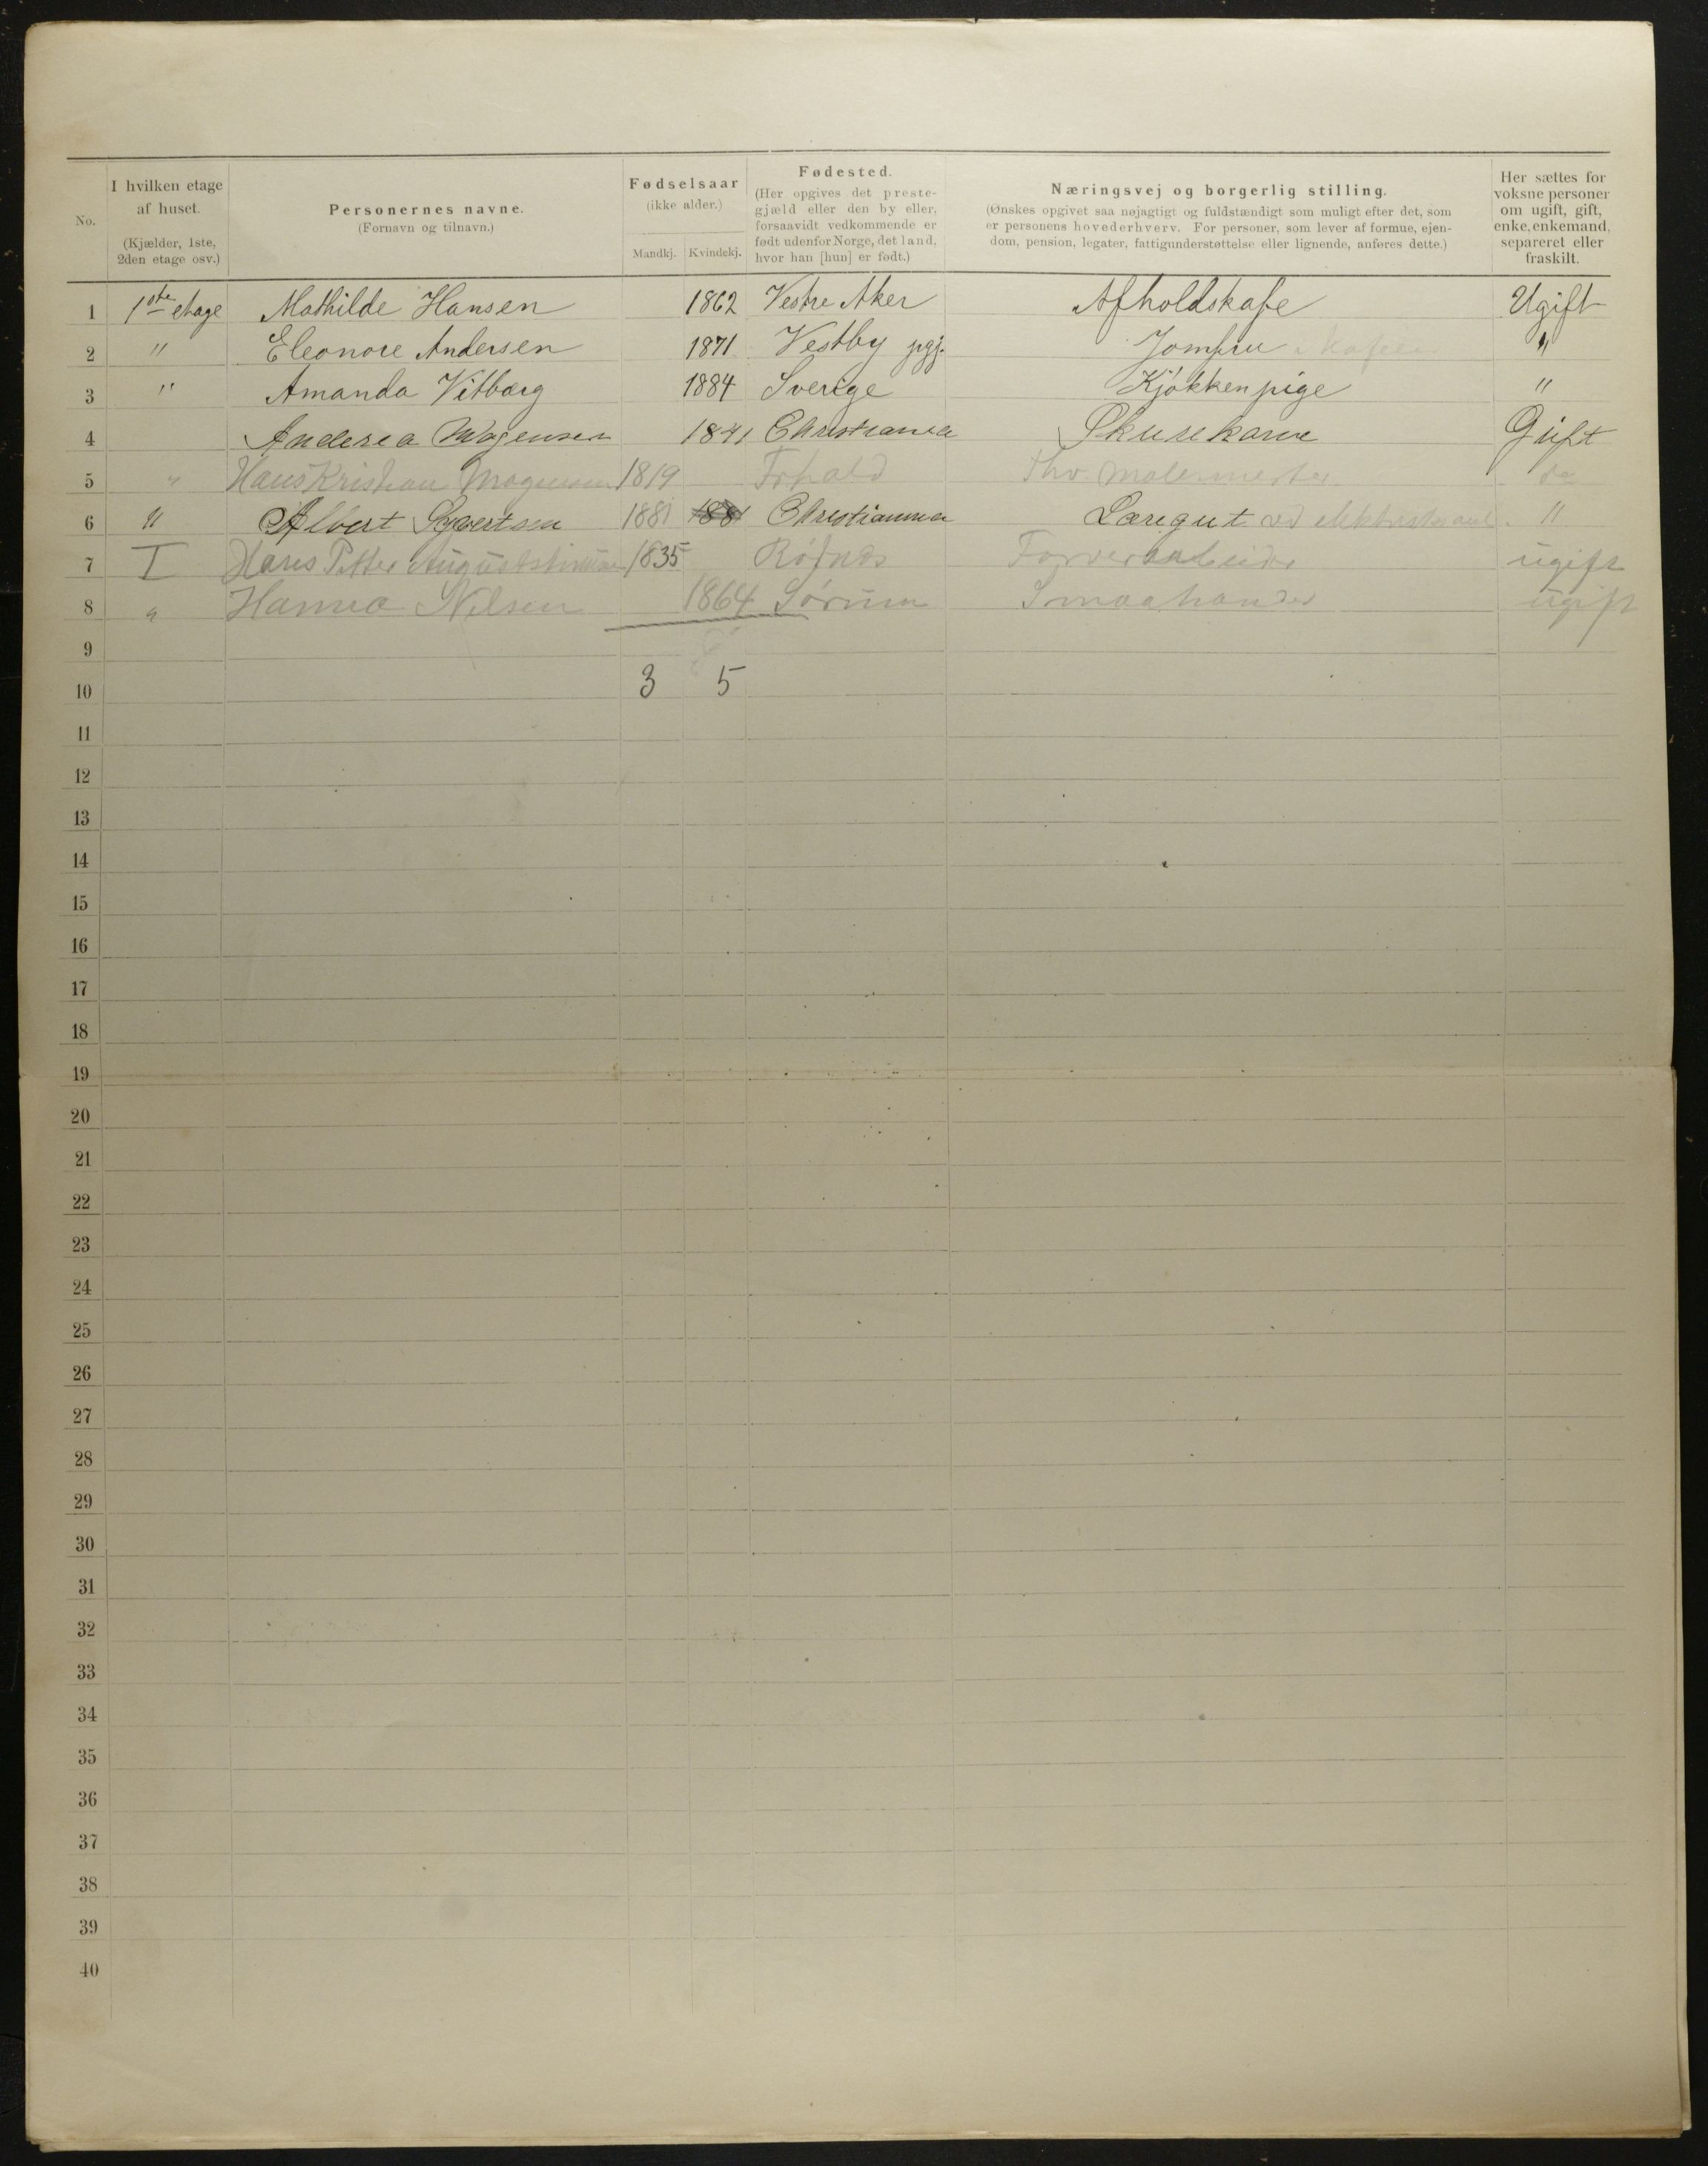 No.
I hvilken etage af huset. (Kjælder, 1ste, 2den etage osv.)
Personernes navne. (Fornavn og tilnavn.)
Fødselsaar (ikke alder.) Mandkj. Kvindekj.
Fødested. (Her opgives det prestegjæld eller den by eller, forsaavidt vedkommende er født udenfor Norge, det land, hvor han [hun] er født.)
Næringsvej og borgerlig stilling. (Ønskes opgivet saa nøjagtigt og fuldstændigt som muligt efter det, som er personens hovederhverv. For personer, som lever af formue, ejendom, pension, legater, fattigunderstøttelse eller lignende, anføres dette.)
Her sættes for voksne personer om ugift, gift, enke, enkemand, separeret eller fraskilt.
1 1ste etage Mathilde Hansen 1862 Vestre Aker Afholdskafe Ugift
2 " Eleonore Andersen 1871 Vestby pgj. Jomfru "
3 " Amanda Vitbarg 1884 Sverige Kjøkkenpige "
4 Anderea Mogensen 1841 Christiania Skurekone Gift
5 " Hans Kristian Mogensen 1819 Frhald Fhv. Malermester do
6 " Albert Syvertsen 1881 Christiannia Læregut ved "
7 I Hans Petter 1835 Farverarbeider ugift
8 " Hanna Nilsen 1864 Sørum Smaahandel ugift
9
10 3 5
11
12
13
14
15
16
17
18
19
20
21
22
23
24
25
26
27
28
29
30
31
32
33
34
35
36
37
38
39
40